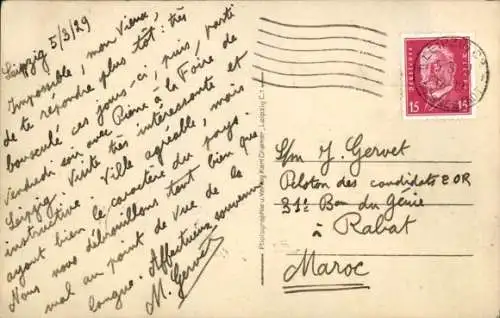 Leipzig 5/3/29
Impossible, mon Vieux,
de te répondre plus tôt : très
bousculé ces jours-ci, puis, parti
vendredi soir avec Pierre à la Foire de
Leipzig. Visite très intéressante et
instructive. Ville agréable, mais
ayant bien le caractère du pays.
Nous nous débrouillons tant bien que
mal au point de vue de la
langue. Affectueux souvenirs
M. Gervet
Photographie u. Verlag Karl Leipzig C.1
DEUTSCHES REICH
15 15
S/m J. Gervet
Peloton des candidats EOR
31e Bon du Génie
à Rabat
Maroc